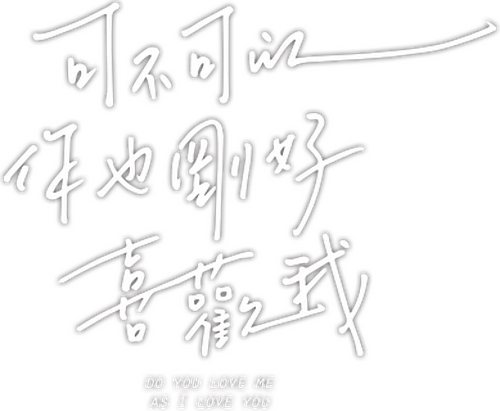 可不可以
你也剛好
喜歡我
DO YOU LOVE ME
AS I LOVE YOU